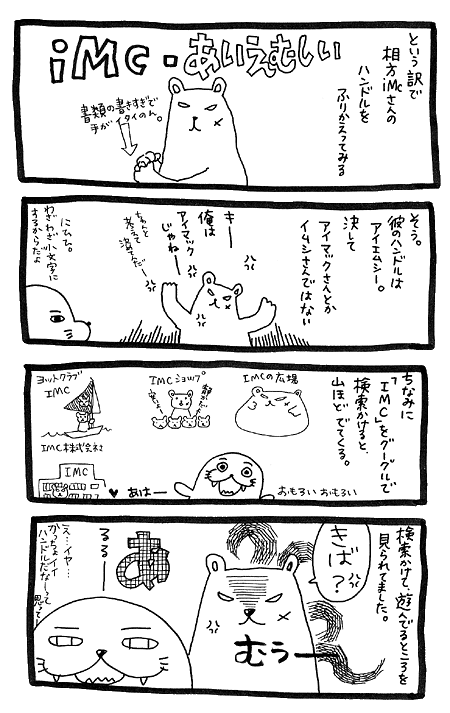 という訳で
相方iMcさんの
ハンドルを
ふりかえってみる
iMc・あいえむしい
書類の書きすぎで
手がイタイのん。
そう。
彼のハンドルは
アイエムシー。
決して
アイマックさんとか
イムシさんではない
キーー
俺は
アイマック
じゃねーー
ちゃんと
考えて
にひひ。
わざわざ小文字に
するからだよ
ちなみに
「IMC」をグーグルで
検索かけると、
山ほどでてくる。
IMCの広場
IMCショップ
ヨットクラブ
IMC
IMC株式会社
IMC
♥あはーー
おもろい おもろい
検索かけて、遊んでるところを
見られてました。
きば?
むぅーー
あ
るるーー
え…イヤ…
かっちょイイ
ハンドルだなーって
思って…